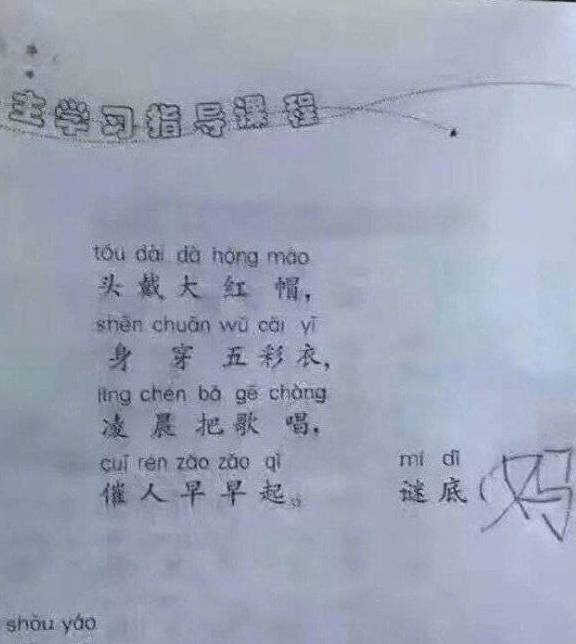 主学习指导课程
tóu dài dà hóng mào
头戴大红帽，
shēn chuān wǔ cǎi yī
身穿五彩衣，
líng chén bǎ gē chàng
凌晨把歌唱，
cuī rén zǎo zǎo qǐ
催人早早起。
mí dǐ
谜底（妈
shòu yáo